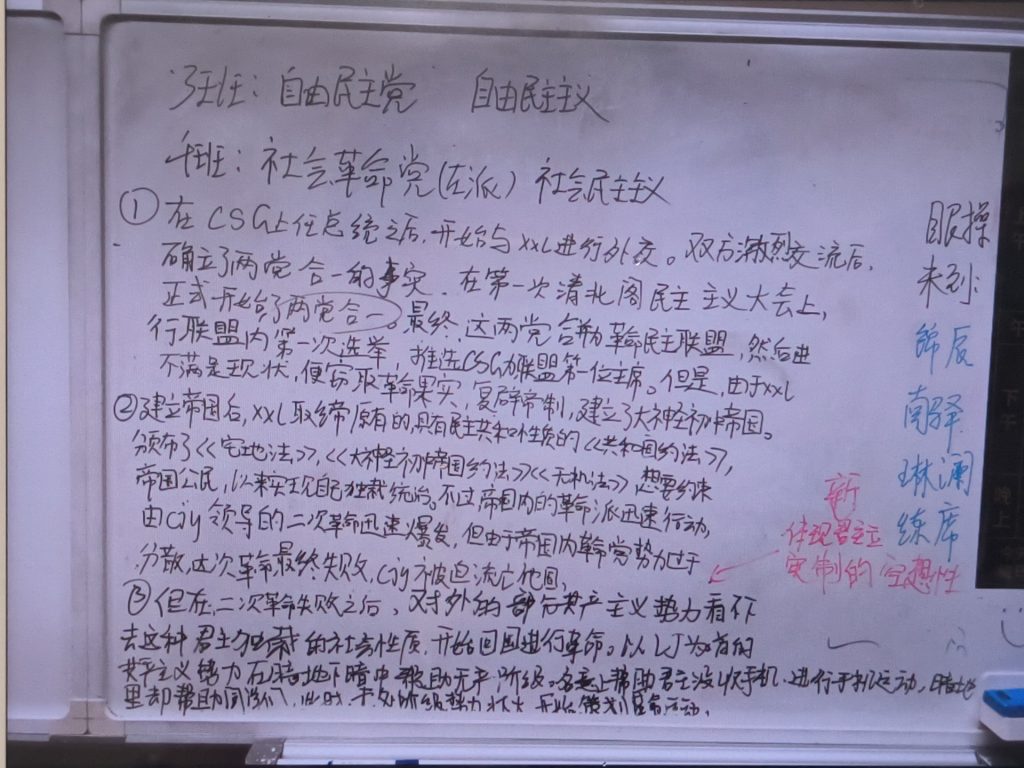 班：自由民主党 自由民主主义
班：社会革命党(左派) 社会民主主义
① 在CSG上任总统之后，开始与xxL进行外交。双方激烈交流后，
确立了两党合一的事实，在第一次清北阁民主主义大会上，
正式开始了两党合一。最终，这两党合称为革命民主联盟，然后进
行联盟内第一次选举，推选CSG为联盟第一位主席。但是，由于xxL
不满足现状，便窃取革命果实，复辟帝制，建立了大神经初中帝国。
②建立帝国后，xxL取缔原有的具有民主共和性质的<<共和国约法>>，
颁布了<<宅地法>>，<<大神经初中帝国约法>><<无机法>>想要约束
帝国公民，以来实现自己独裁统治。不过帝国内的革命派迅速行动，
由ciy领导的二次革命迅速爆发，但由于帝国内革命党势力过于
分散，这次革命最终失败，ciy被迫流亡他国。
③但在，二次革命失败之后，对外的部分共产主义势力看不
去这种君主独裁的社会性质，开始回国进行革命。以LJ为首的
共产主义势力在暗地下暗中帮助无产阶级。名义上帮助君主没收手机，进行手机运动，暗地
里却帮助
眼操
未到：
南驿
琳澜
练席
新
体现君主立
宪制的 空想性